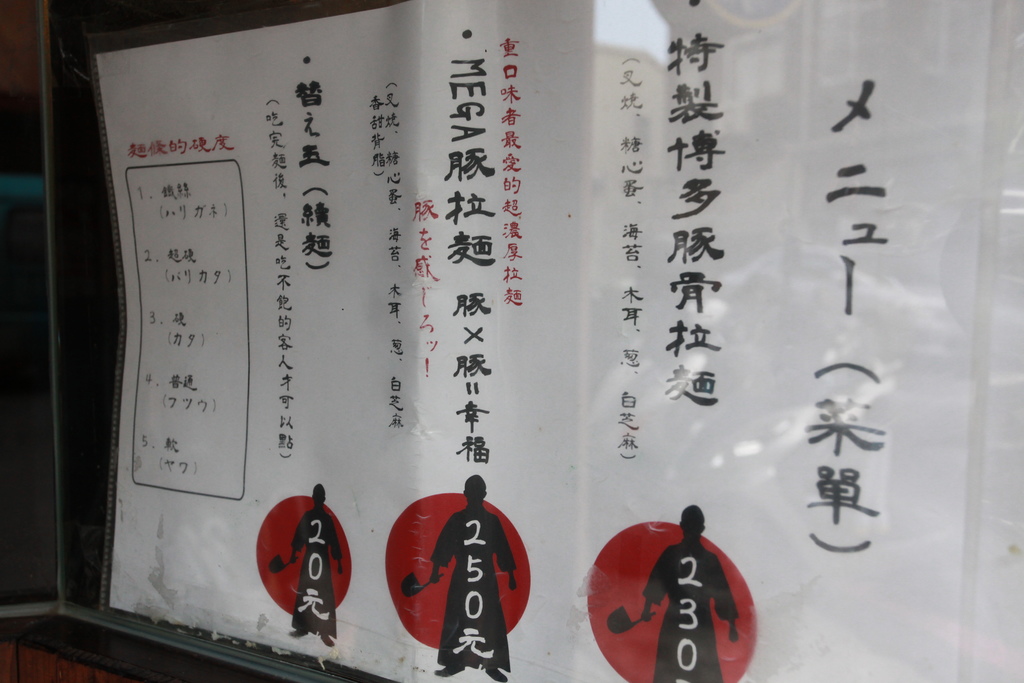 メニュー(菜單)
・特製博多豚骨拉麵
(叉燒、糖心蛋、海苔、木耳、蔥、白芝麻)
230
重口味者最愛的超濃厚拉麵
・MEGA豚拉麵 豚×豚=幸福
豚を感じろッ!
(叉燒、糖心蛋、海苔、木耳、蔥、白芝麻
香甜背脂)
250元
・替え玉(續麵)
(吃完麵後,還是吃不飽的客人才可以點)
20元
麵條的硬度
1. 鐵絲
(ハリガネ)
2. 超硬
(バリカタ)
3. 硬
(カタ)
4. 普通
(フツウ)
5. 軟
(ヤワ)